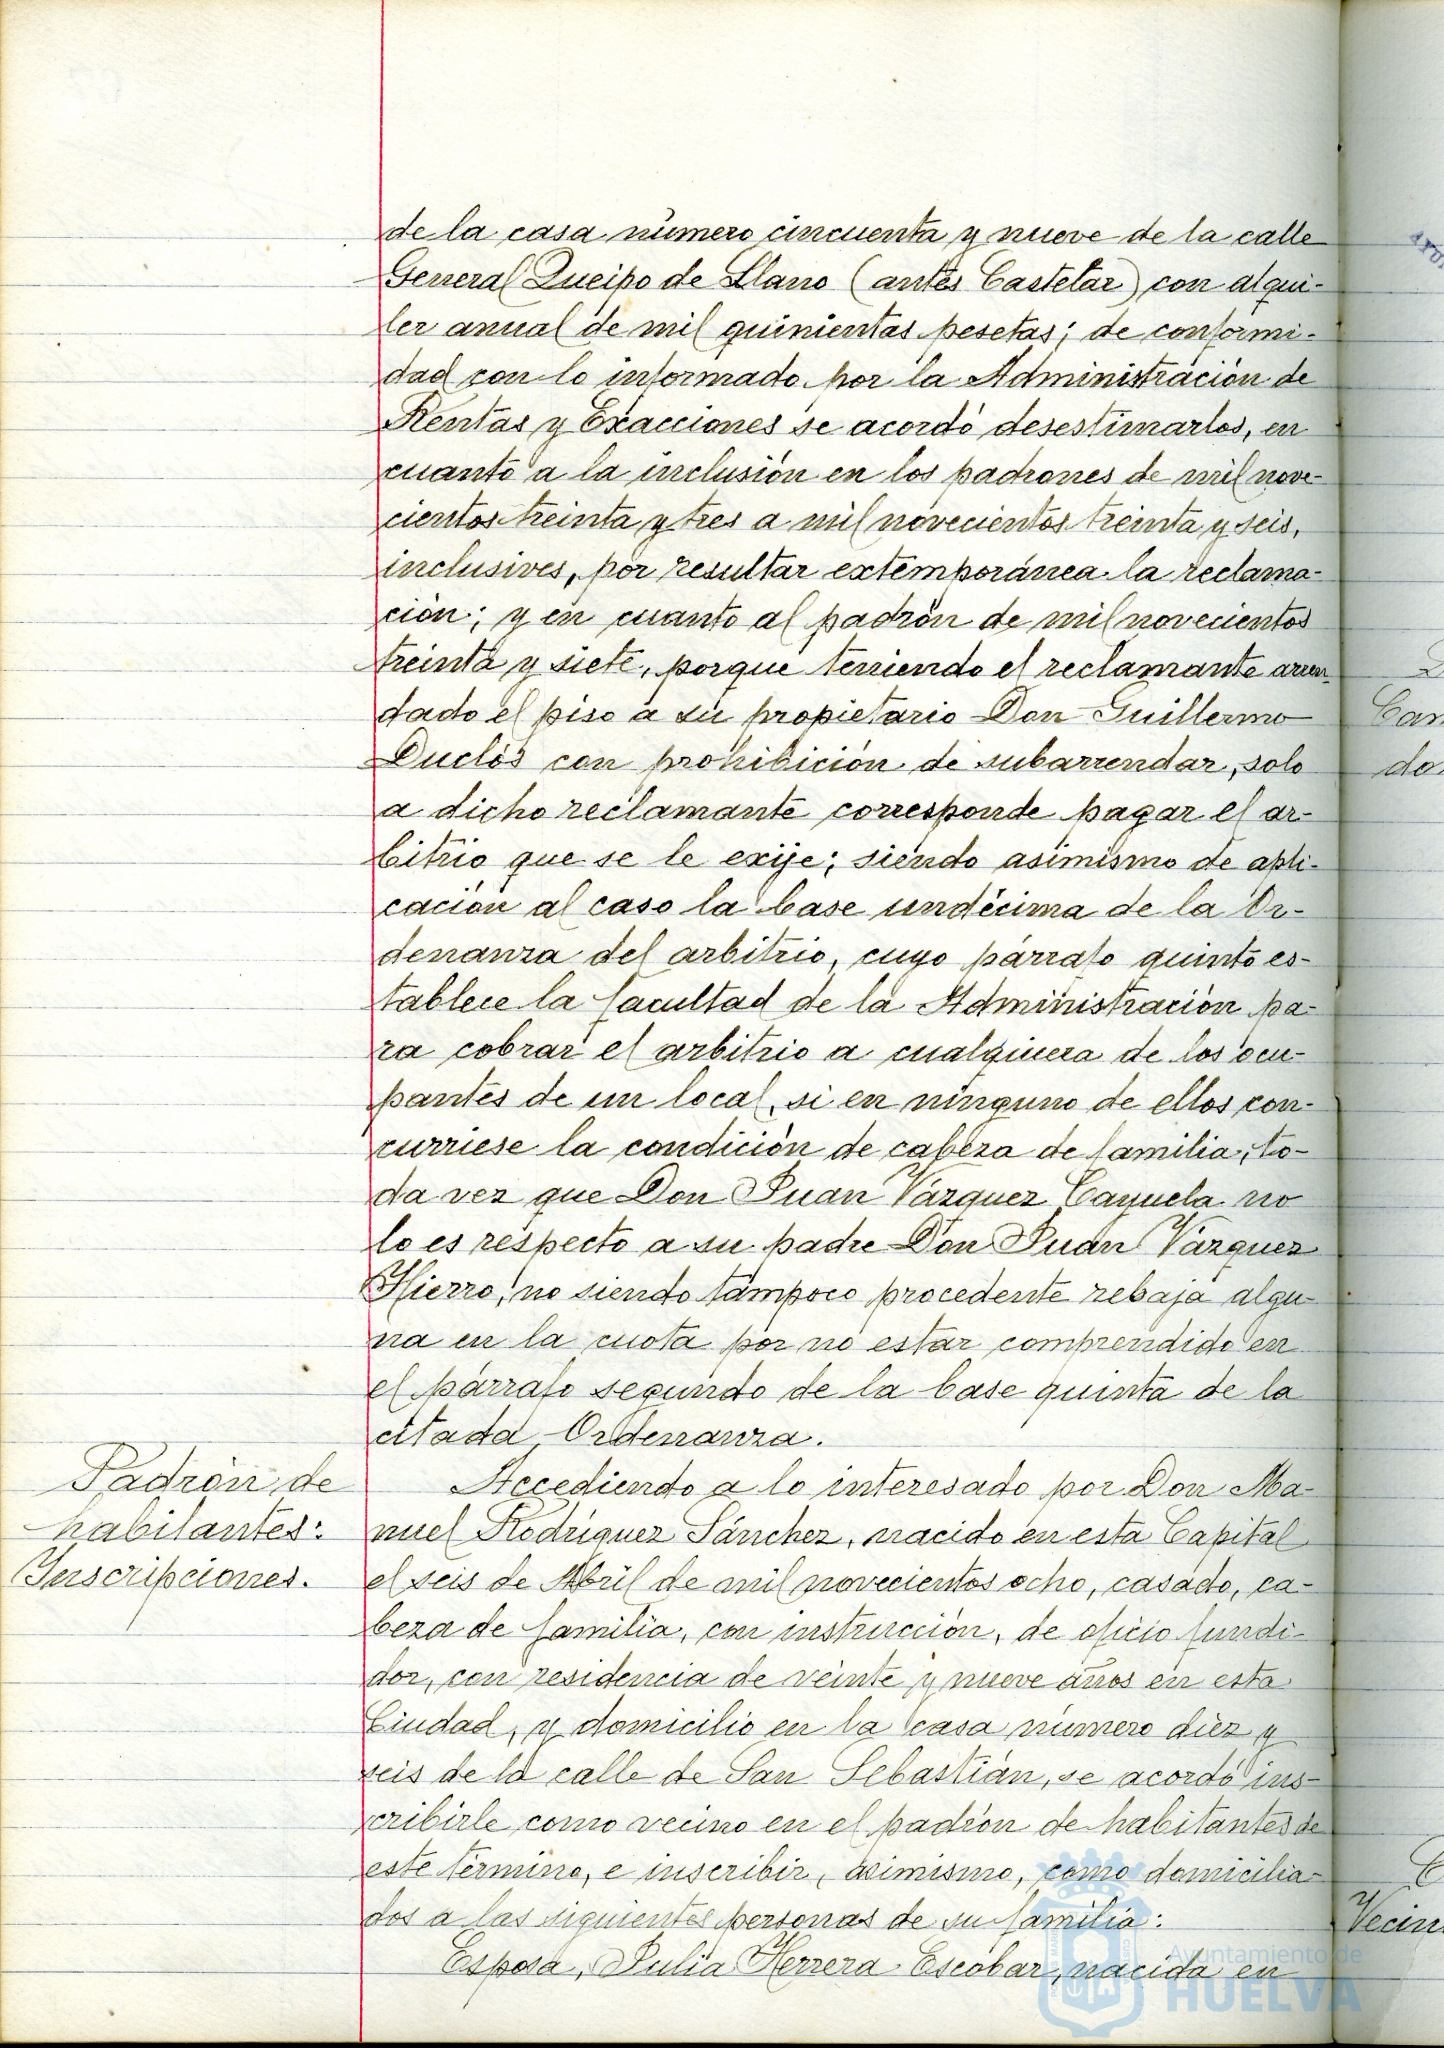 de la casa número cincuenta y nueve de la calle
General Queipo de Llano (antes Castelar) con alqui-
ler anual de mil quinientas pesetas; de conformi-
dad con lo informado por la Administración de
Rentas y Exacciones se acordó desestimarlos, en
cuanto a la inclusión en los padrones de mil nove-
cientos treinta y tres a mil novecientos treinta y seis,
inclusives, por resultar extemporánea la reclama-
ción; y en cuanto al padrón de mil novecientos
treinta y siete, porque teniendo el reclamante arren-
dado el piso a su propietario Don Guillermo
Duclós con prohibición de subarrendar, solo
a dicho reclamante corresponde pagar el ar-
bitrio que se le exije; siendo asimismo de apli-
cación al caso la base undécima de la Or-
denanza del arbitrio, cuyo párrafo quinto es-
tablece la facultad de la Administración pa-
ra cobrar el arbitrio a cualquiera de los ocu-
pantes de un local, si en ninguno de ellos con-
curriese la condición de cabeza de familia, to-
da vez que Don Juan Vázquez Cayuela no
lo es respecto a su padre Don Juan Vázquez
Hierro, no siendo tampoco procedente rebaja algu-
na en la cuota por no estar comprendido en
el párrafo segundo de la base quinta de la
citada Ordenanza.
Padrón de
habitantes:
Inscripciones.
Accediendo a lo interesado por Don Ma-
nuel Rodríguez Sánchez, nacido en esta Capital
el seis de Abril de mil novecientos ocho, casado, ca-
beza de familia, con instrucción, de oficio fundi-
dor, con residencia de veinte y nueve años en esta
Ciudad, y domicilio en la casa número diez y
seis de la calle de San Sebastián, se acordó ins-
cribirle como vecino en el padrón de habitantes de
este término, e inscribir, asimismo, como domicilia-
dos a las siguientes personas de su familia:
Esposa, Julia Herrera Escobar, nacida en
Ayuntamiento de
HUELVA